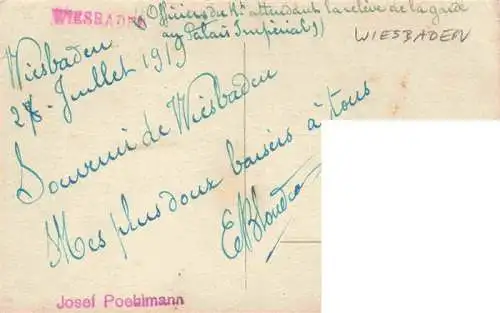 WIESBADEN
(Officiers du Bon attendant la relève de la garde
au Palais Impérial)
WIESBADEN
Wiesbaden
28 Juillet 1919
Souvenir de Wiesbaden
Mes plus doux baisers à tous
Josef Poehlmann